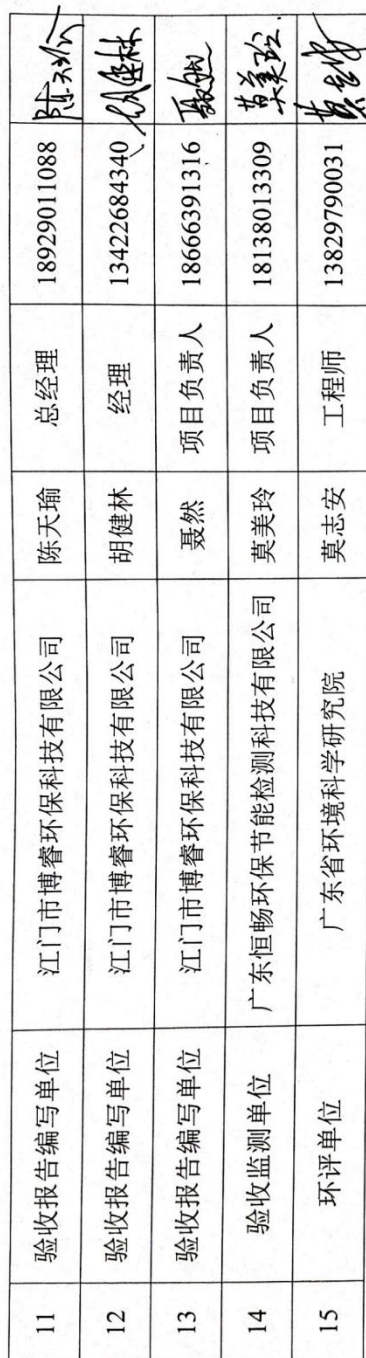 11 验收报告编写单位 江门市博睿环保科技有限公司 陈天瑜 总经理 18929011088
12 验收报告编写单位 江门市博睿环保科技有限公司 胡健林 经理 13422684340
13 验收报告编写单位 江门市博睿环保科技有限公司 聂然 项目负责人 18666391316
14 验收监测单位 广东恒畅环保节能检测科技有限公司 莫美玲 项目负责人 18138013309 莫美玲
15 环评单位 广东省环境科学研究院 莫志安 工程师 13829790031